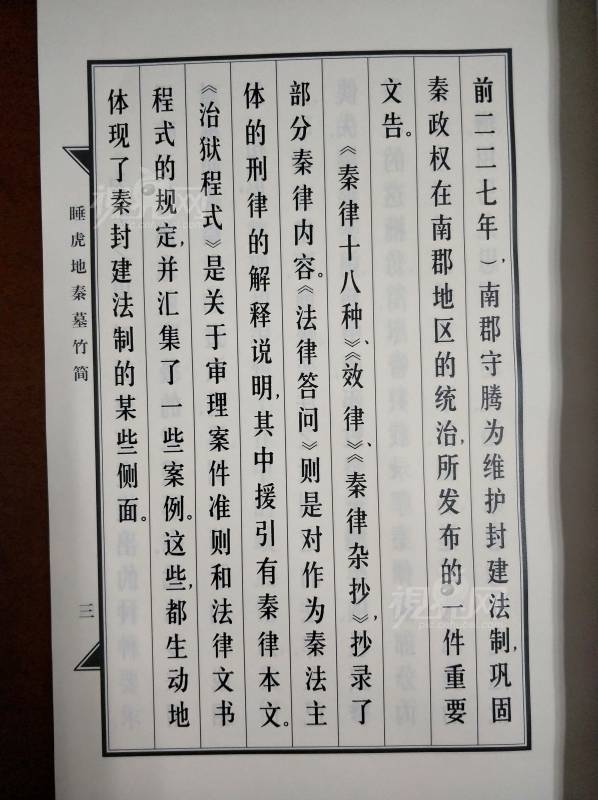 前二二七年)，南郡守腾为维护封建法制，巩固
秦政权在南郡地区的统治，所发布的一件重要
文告。
《秦律十八种》、《效律》、《秦律杂抄》，抄录了
部分秦律内容。《法律答问》则是对作为秦法主
体的刑律的解释说明，其中援引有秦律本文。
《治狱程式》是关于审理案件准则和法律文书
程式的规定，并汇集了一些案例。这些，都生动地
体现了秦封建法制的某些侧面。
睡虎地秦墓竹简
三